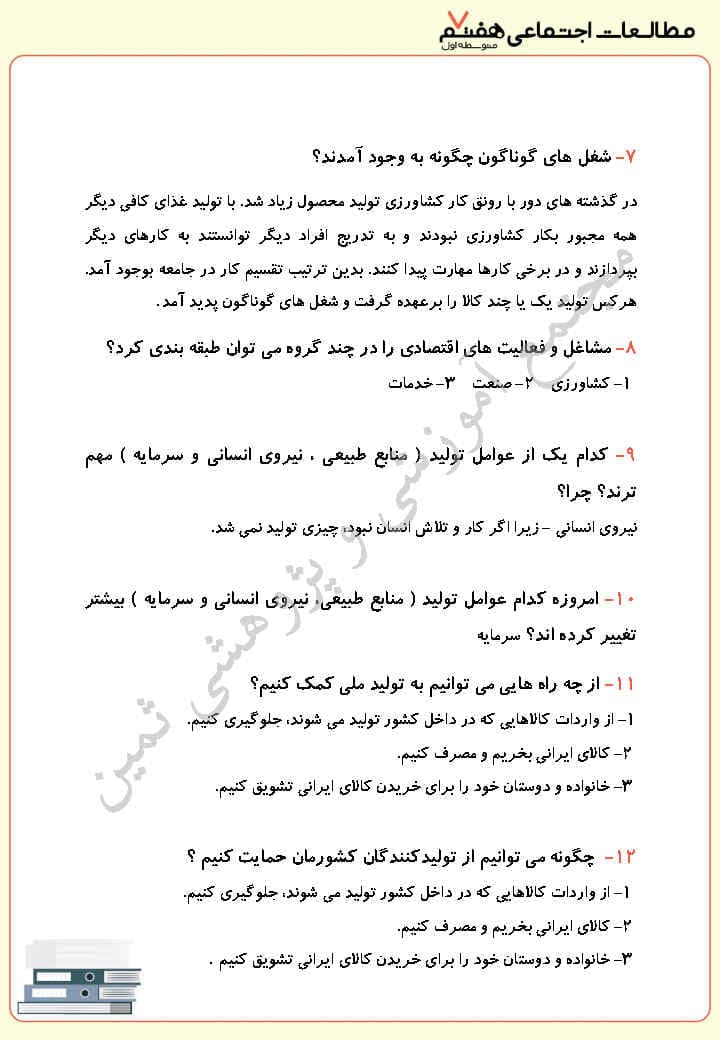 مطالعات اجتماعی هفتم ۷
متوسطه اول
۷- شغل های گوناگون چگونه به وجود آمدند؟
در گذشته های دور با رونق کار کشاورزی تولید محصول زیاد شد. با تولید غذای کافی دیگر
همه مجبور بکار کشاورزی نبودند و به تدریج افراد دیگر توانستند به کارهای دیگر
بپردازند و در برخی کارها مهارت پیدا کنند. بدین ترتیب تقسیم کار در جامعه بوجود آمد.
هرکس تولید یک یا چند کالا را برعهده گرفت و شغل های گوناگون پدید آمد.
۸- مشاغل و فعالیت های اقتصادی را در چند گروه می توان طبقه بندی کرد؟
۱- کشاورزی ۲- صنعت ۳- خدمات
۹- کدام یک از عوامل تولید ( منابع طبیعی ، نیروی انسانی و سرمایه ) مهم
ترند؟ چرا؟
نیروی انسانی – زیرا اگر کار و تلاش انسان نبود، چیزی تولید نمی شد.
۱۰- امروزه کدام عوامل تولید ( منابع طبیعی، نیروی انسانی و سرمایه ) بیشتر
تغییر کرده اند؟ سرمایه
۱۱- از چه راه هایی می توانیم به تولید ملی کمک کنیم؟
۱- از واردات کالاهایی که در داخل کشور تولید می شوند، جلوگیری کنیم.
۲- کالای ایرانی بخریم و مصرف کنیم.
۳- خانواده و دوستان خود را برای خریدن کالای ایرانی تشویق کنیم.
۱۲- چگونه می توانیم از تولیدکنندگان کشورمان حمایت کنیم ؟
۱- از واردات کالاهایی که در داخل کشور تولید می شوند، جلوگیری کنیم.
۲- کالای ایرانی بخریم و مصرف کنیم.
۳- خانواده و دوستان خود را برای خریدن کالای ایرانی تشویق کنیم .
مجتمع آموزشی و پژوهشی ثمین